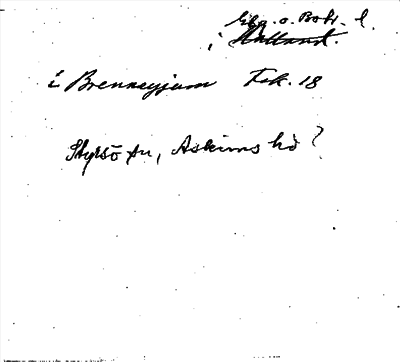 Gbg. o. Boh. l.
i Halland.
i Brenneyjum Fsk. 18
Styrsö sn, Askims hd?